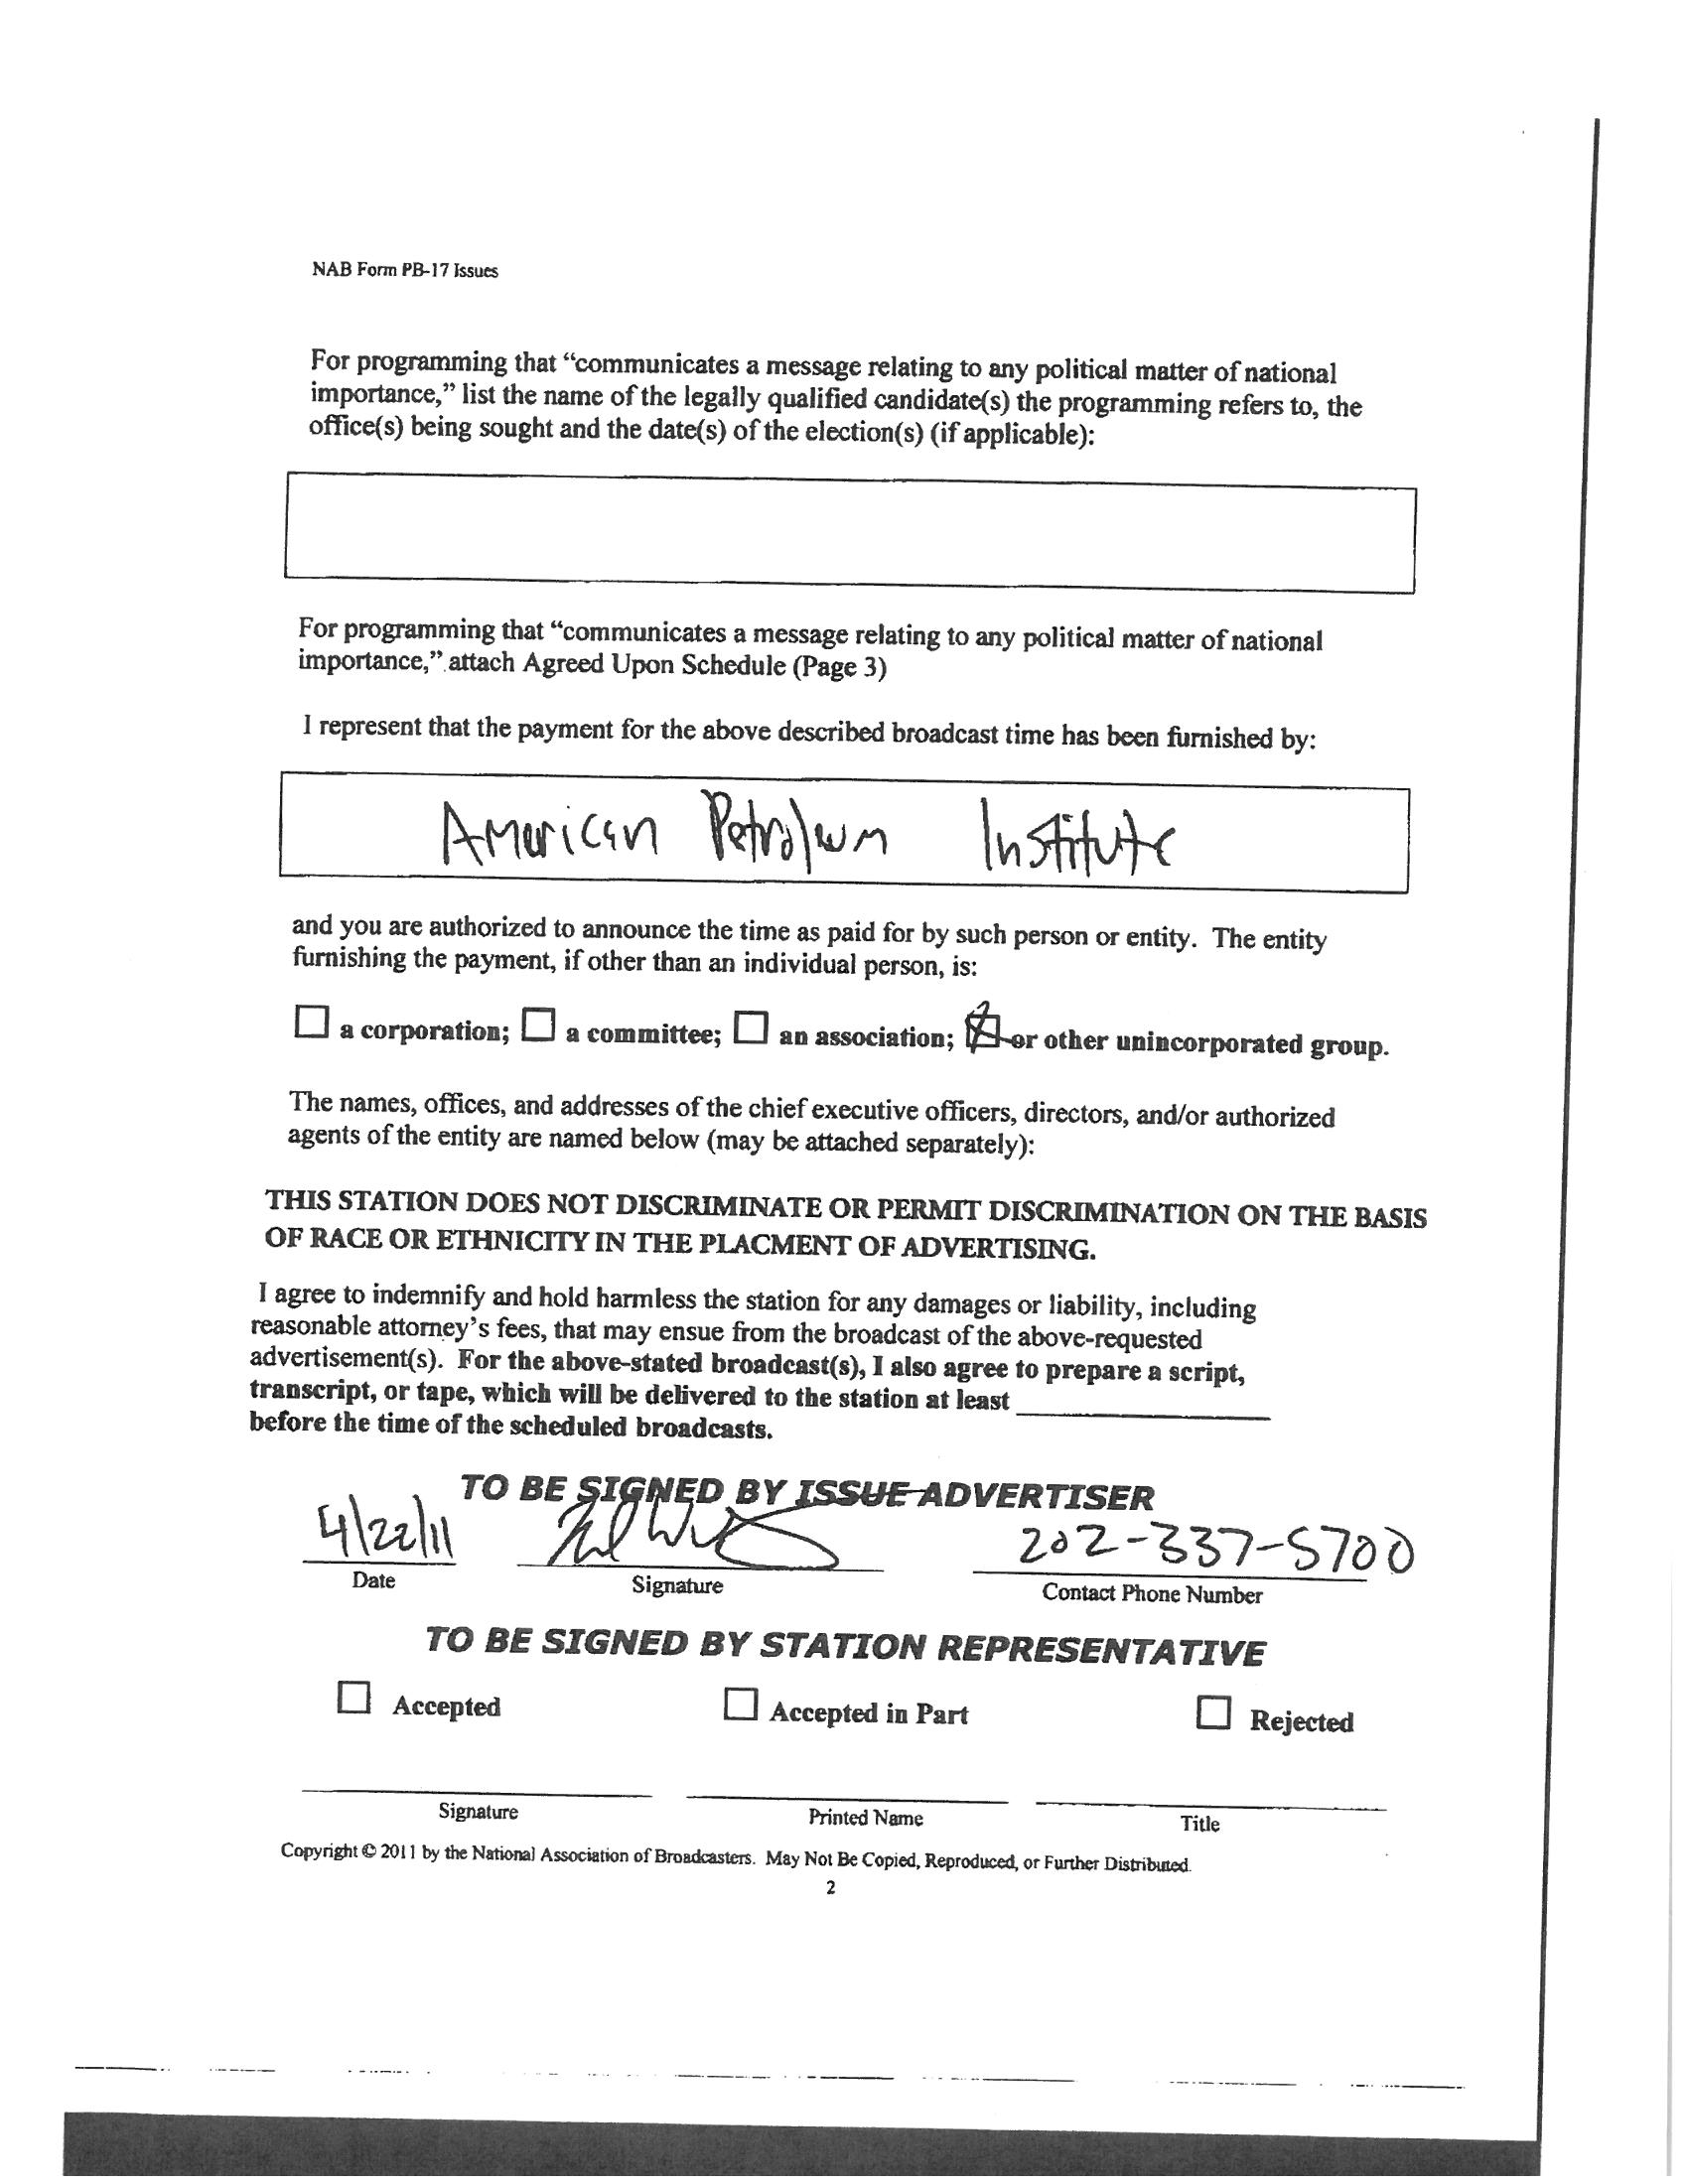 NAB Form PB-17 Issues
For programming that “communicates a message relating to any political matter of national
importance,” list the name of the legally qualified candidate(s) the programming refers to, the
office(s) being sought and the date(s) of the election(s) (if applicable):
For programming that “communicates a message relating to any political matter of national
importance,” attach Agreed Upon Schedule (Page 3)
I represent that the payment for the above described broadcast time has been furnished by:
American Petroleum Institute
and you are authorized to announce the time as paid for by such person or entity. The entity
furnishing the payment, if other than an individual person, is:
a corporation; a committee; an association; or other unincorporated group.
The names, offices, and addresses of the chief executive officers, directors, and/or authorized
agents of the entity are named below (may be attached separately):
THIS STATION DOES NOT DISCRIMINATE OR PERMIT DISCRIMINATION ON THE BASIS
OF RACE OR ETHNICITY IN THE PLACMENT OF ADVERTISING.
I agree to indemnify and hold harmless the station for any damages or liability, including
reasonable attorney’s fees, that may ensue from the broadcast of the above-requested
advertisement(s). For the above-stated broadcast(s), I also agree to prepare a script,
transcript, or tape, which will be delivered to the station at least
before the time of the scheduled broadcasts.
TO BE SIGNED BY ISSUE ADVERTISER
4/22/11 202-337-5700
Date Signature Contact Phone Number
TO BE SIGNED BY STATION REPRESENTATIVE
Accepted Accepted in Part Rejected
Signature Printed Name Title
Copyright © 2011 by the National Association of Broadcasters. May Not Be Copied, Reproduced, or Further Distributed.
2